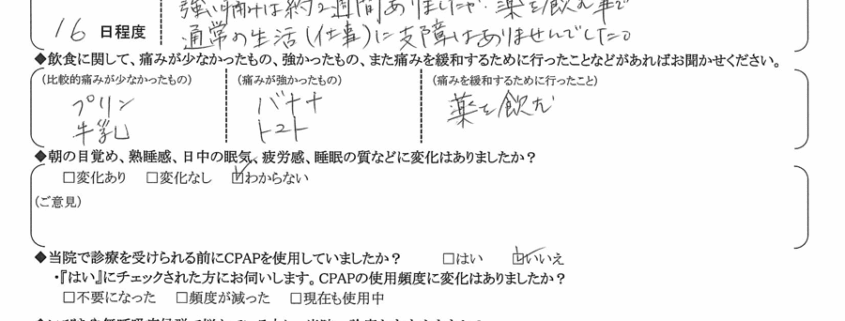 強い痛みは約2週間ありましたが、薬を飲む事で
16 日程度 通常の生活(仕事)に支障はありませんでした。
◆飲食に関して、痛みが少なかったもの、強かったもの、また痛みを緩和するために行ったことなどがあればお聞かせください。
(比較的痛みが少なかったもの) (痛みが強かったもの) (痛みを緩和するために行ったこと)
プリン バナナ 薬を飲む
牛乳 トマト
◆朝の目覚め、熟睡感、日中の眠気、疲労感、睡眠の質などに変化はありましたか?
□変化あり □変化なし ☑わからない
(ご意見)
◆当院で診療を受けられる前にCPAPを使用していましたか? □はい ☑いいえ
・『はい』にチェックされた方にお伺いします。CPAPの使用頻度に変化はありましたか?
□不要になった □頻度が減った □現在も使用中